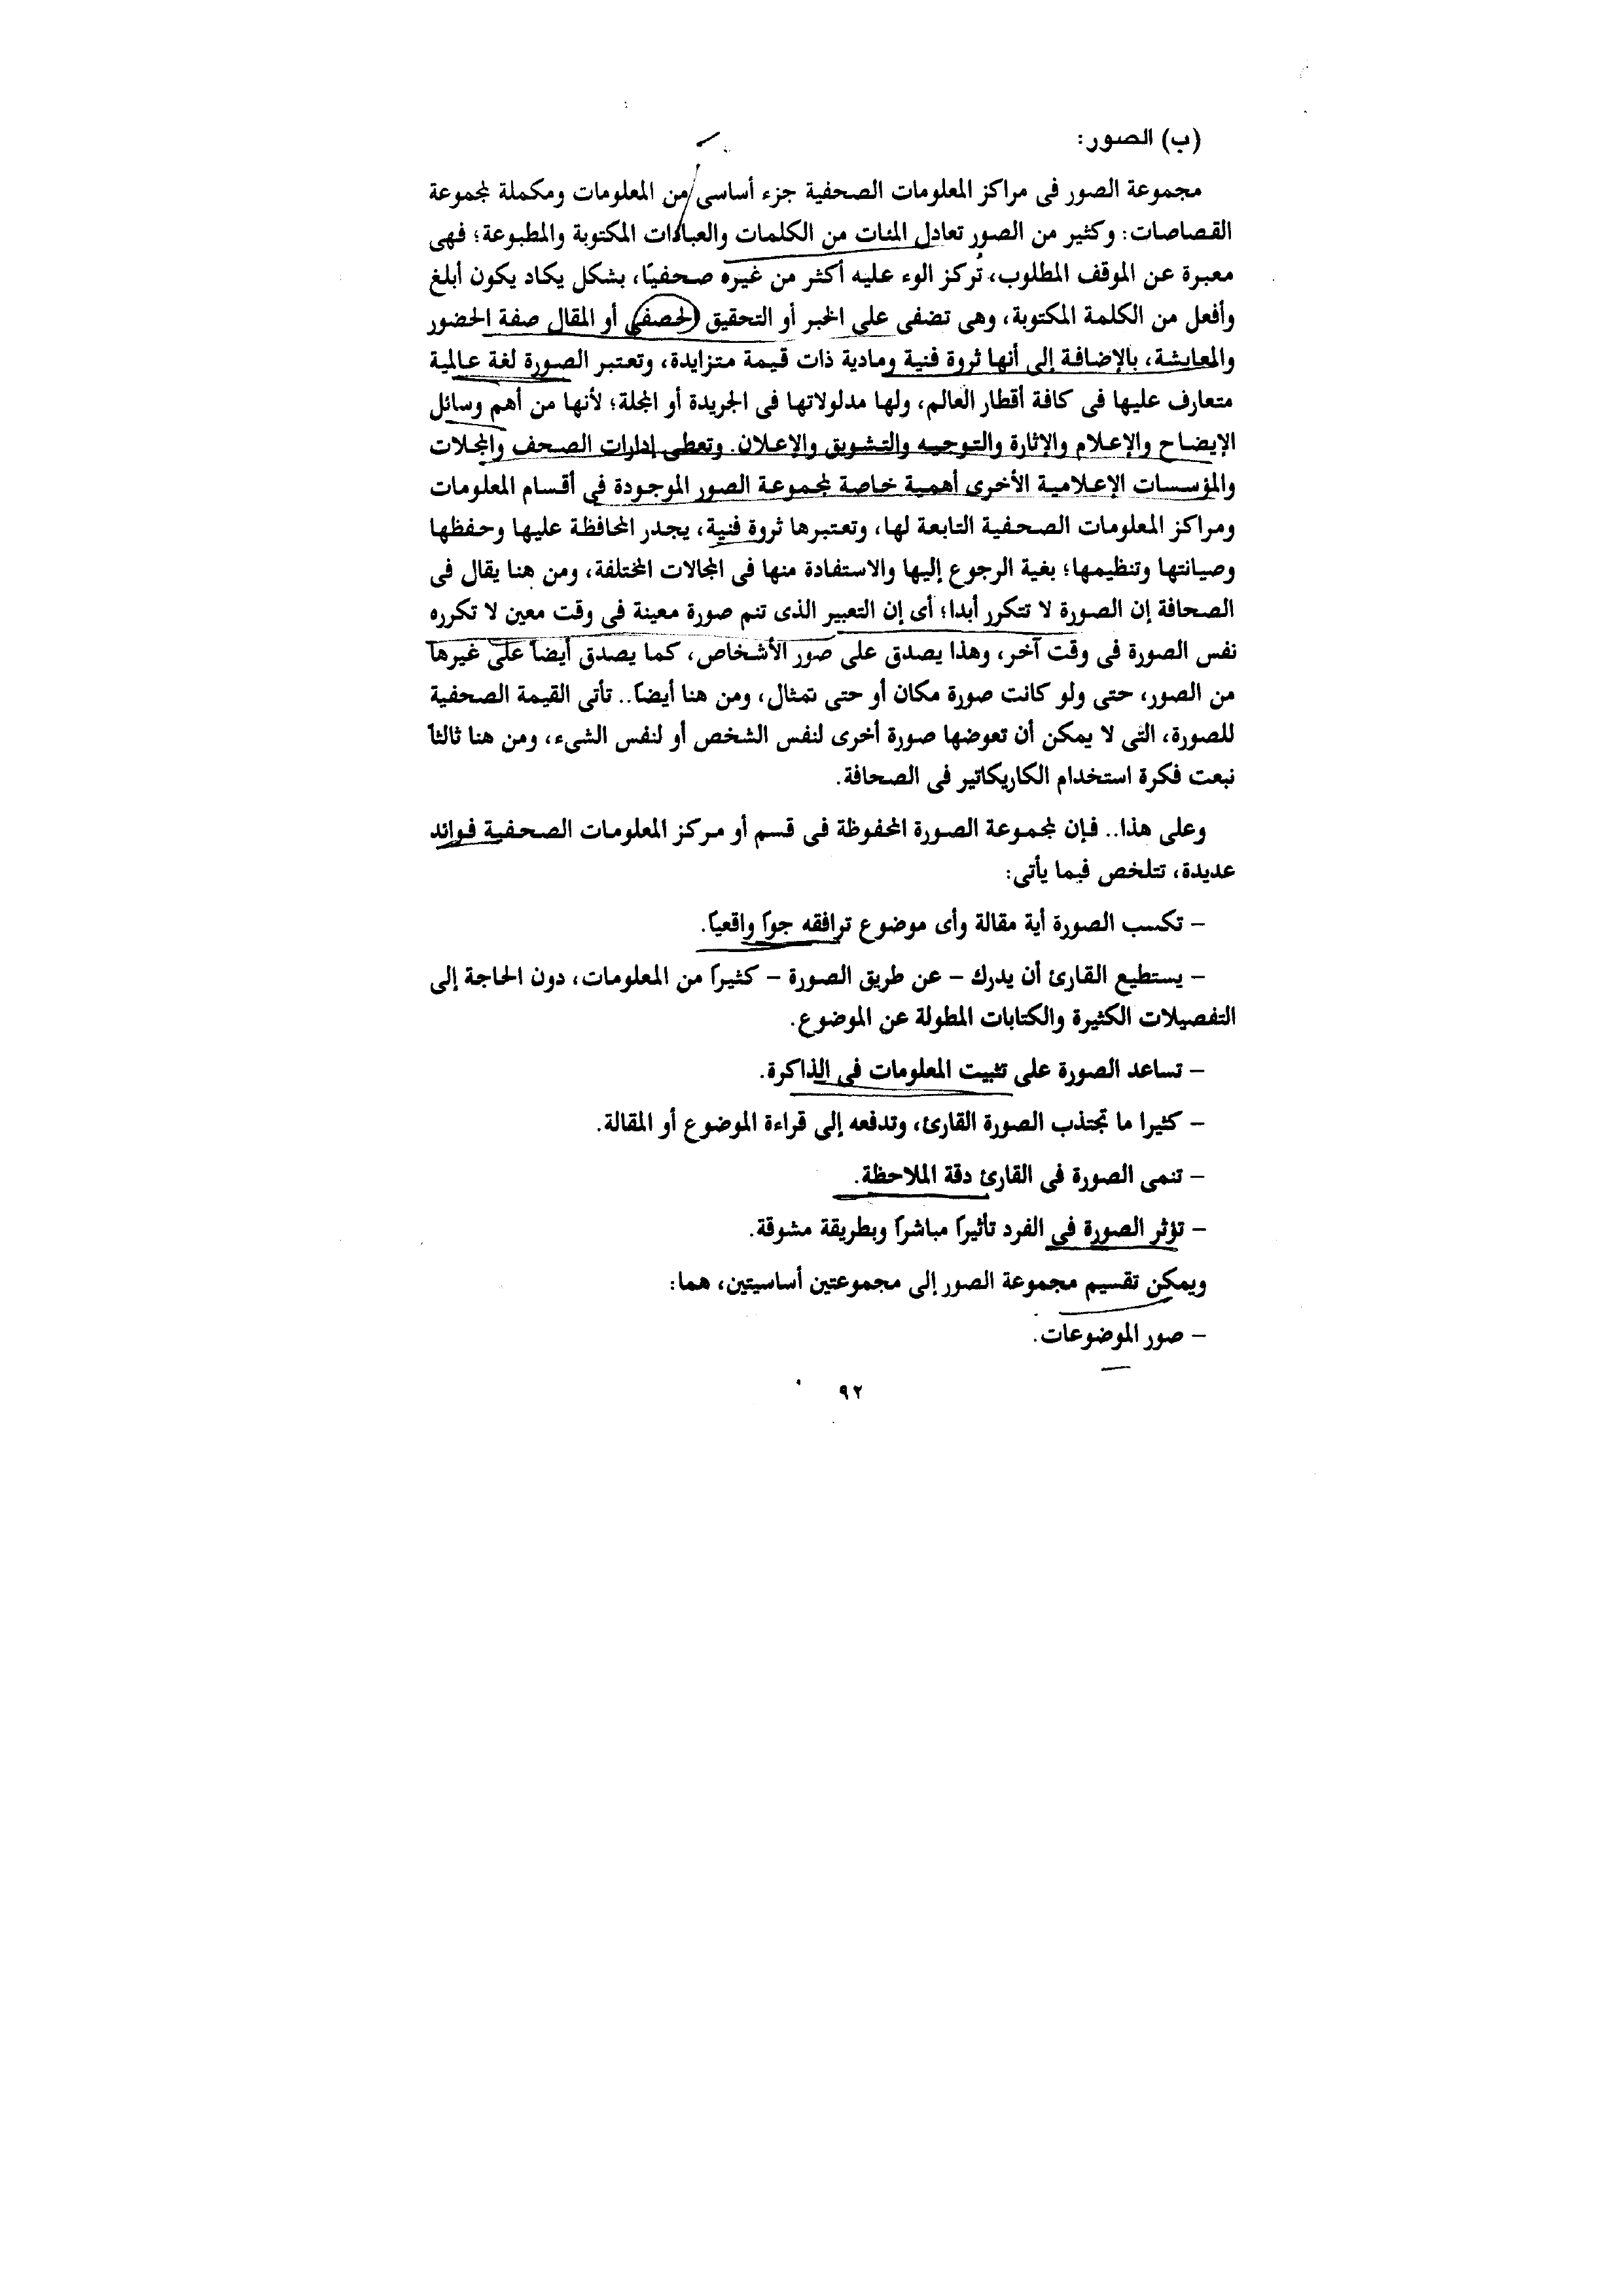 (ب) الصور:
مجموعة الصور فى مراكز المعلومات الصحفية جزء أساسى من المعلومات ومكملة لمجموعة
القصاصات: وكثير من الصور تعادل المئات من الكلمات والعبارات المكتوبة والمطبوعة؛ فهى
معبرة عن الموقف المطلوب، تُركز الوء عليه أكثر من غيره صحفيًا، بشكل يكاد يكون أبلغ
وأفعل من الكلمة المكتوبة، وهى تضفى على الخبر أو التحقيق الحصفى أو المقال صفة الحضور
والمعايشة، بالإضافة إلى أنها ثروة فنية ومادية ذات قيمة متزايدة، وتعتبر الصورة لغة عالمية
متعارف عليها فى كافة أقطار العالم، ولها مدلولاتها فى الجريدة أو المجلة؛ لأنها من أهم وسائل
الإيضاح والإعلام والإثارة والتوجيه والتشويق والإعلان. وتعطى إدارات الصحف والمجلات
والمؤسسات الإعلامية الأخرى أهمية خاصة لمجموعة الصور الموجودة فى أقسام المعلومات
ومراكز المعلومات الصحفية التابعة لها، وتعتبرها ثروة فنية، يجدر المحافظة عليها وحفظها
وصيانتها وتنظيمها؛ بغية الرجوع إليها والاستفادة منها فى المجالات المختلفة، ومن هنا يقال فى
الصحافة إن الصورة لا تتكرر أبدا؛ أى إن التعبير الذى تنم صورة معينة فى وقت معين لا تكرره
نفس الصورة فى وقت آخر، وهذا يصدق على صور الأشخاص، كما يصدق أيضاً على غيرها
من الصور، حتى ولو كانت صورة مكان أو حتى تمثال، ومن هنا أيضاً.. تأتى القيمة الصحفية
للصورة، التى لا يمكن أن تعوضها صورة أخرى لنفس الشخص أو لنفس الشىء، ومن هنا ثالثاً
نبعت فكرة استخدام الكاريكاتير فى الصحافة.
وعلى هذا.. فإن لمجموعة الصورة المحفوظة فى قسم أو مركز المعلومات الصحفية فوائد
عديدة، تتلخص فيما يأتى:
– تكسب الصورة أية مقالة وأى موضوع ترافقه جوًا واقعيًا.
– يستطيع القارئ أن يدرك – عن طريق الصورة – كثيرًا من المعلومات، دون الحاجة إلى
التفصيلات الكثيرة والكتابات المطولة عن الموضوع.
– تساعد الصورة على تثبيت المعلومات فى الذاكرة.
– كثيرا ما تجتذب الصورة القارئ، وتدفعه إلى قراءة الموضوع أو المقالة.
– تنمى الصورة فى القارئ دقة الملاحظة.
– تؤثر الصورة فى الفرد تأثيرًا مباشرًا وبطريقة مشوقة.
ويمكن تقسيم مجموعة الصور إلى مجموعتين أساسيتين، هما:
– صور الموضوعات.
٩٢